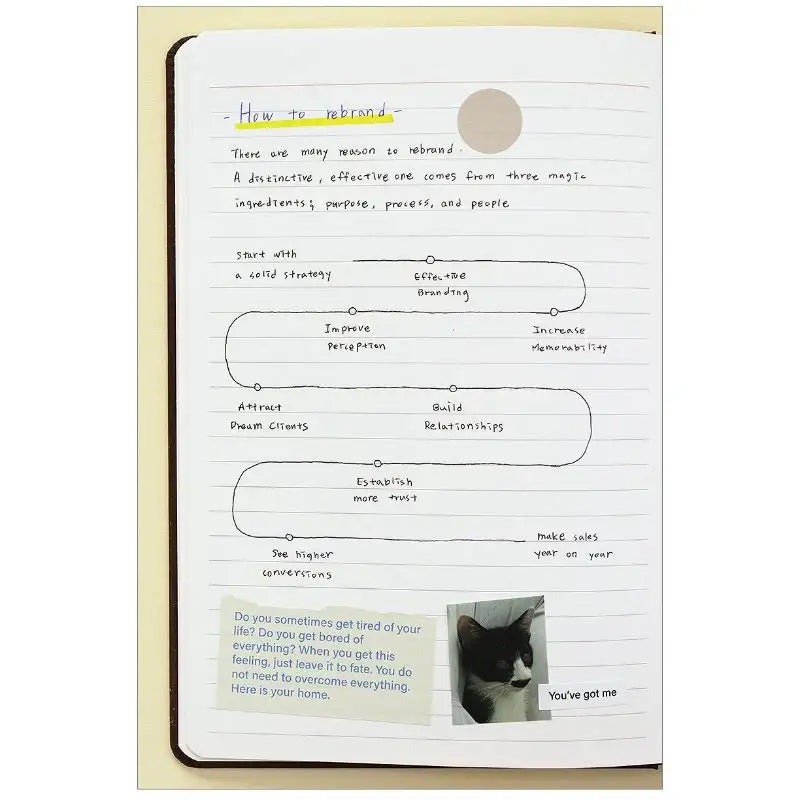 - How to rebrand -
There are many reason to rebrand.
A distinctive, effective one comes from three magic
ingredients; purpose, process, and people
Start with
a solid strategy
Effective
Branding
Improve
Perception
Increase
Memorability
Attract
Dream Clients
Build
Relationships
Establish
more trust
See higher
conversions
make sales
year on year
Do you sometimes get tired of your
life? Do you get bored of
everything? When you get this
feeling, just leave it to fate. You do
not need to overcome everything.
Here is your home.
You've got me